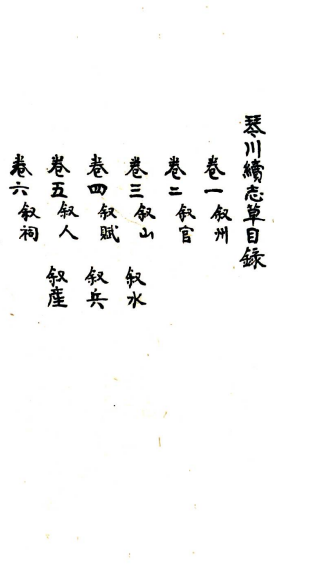 琴川續志草目錄
卷一 叙州
卷二 叙官
卷三 叙山 叙水
卷四 叙賦 叙兵
卷五 叙人 叙產
卷六 叙祠